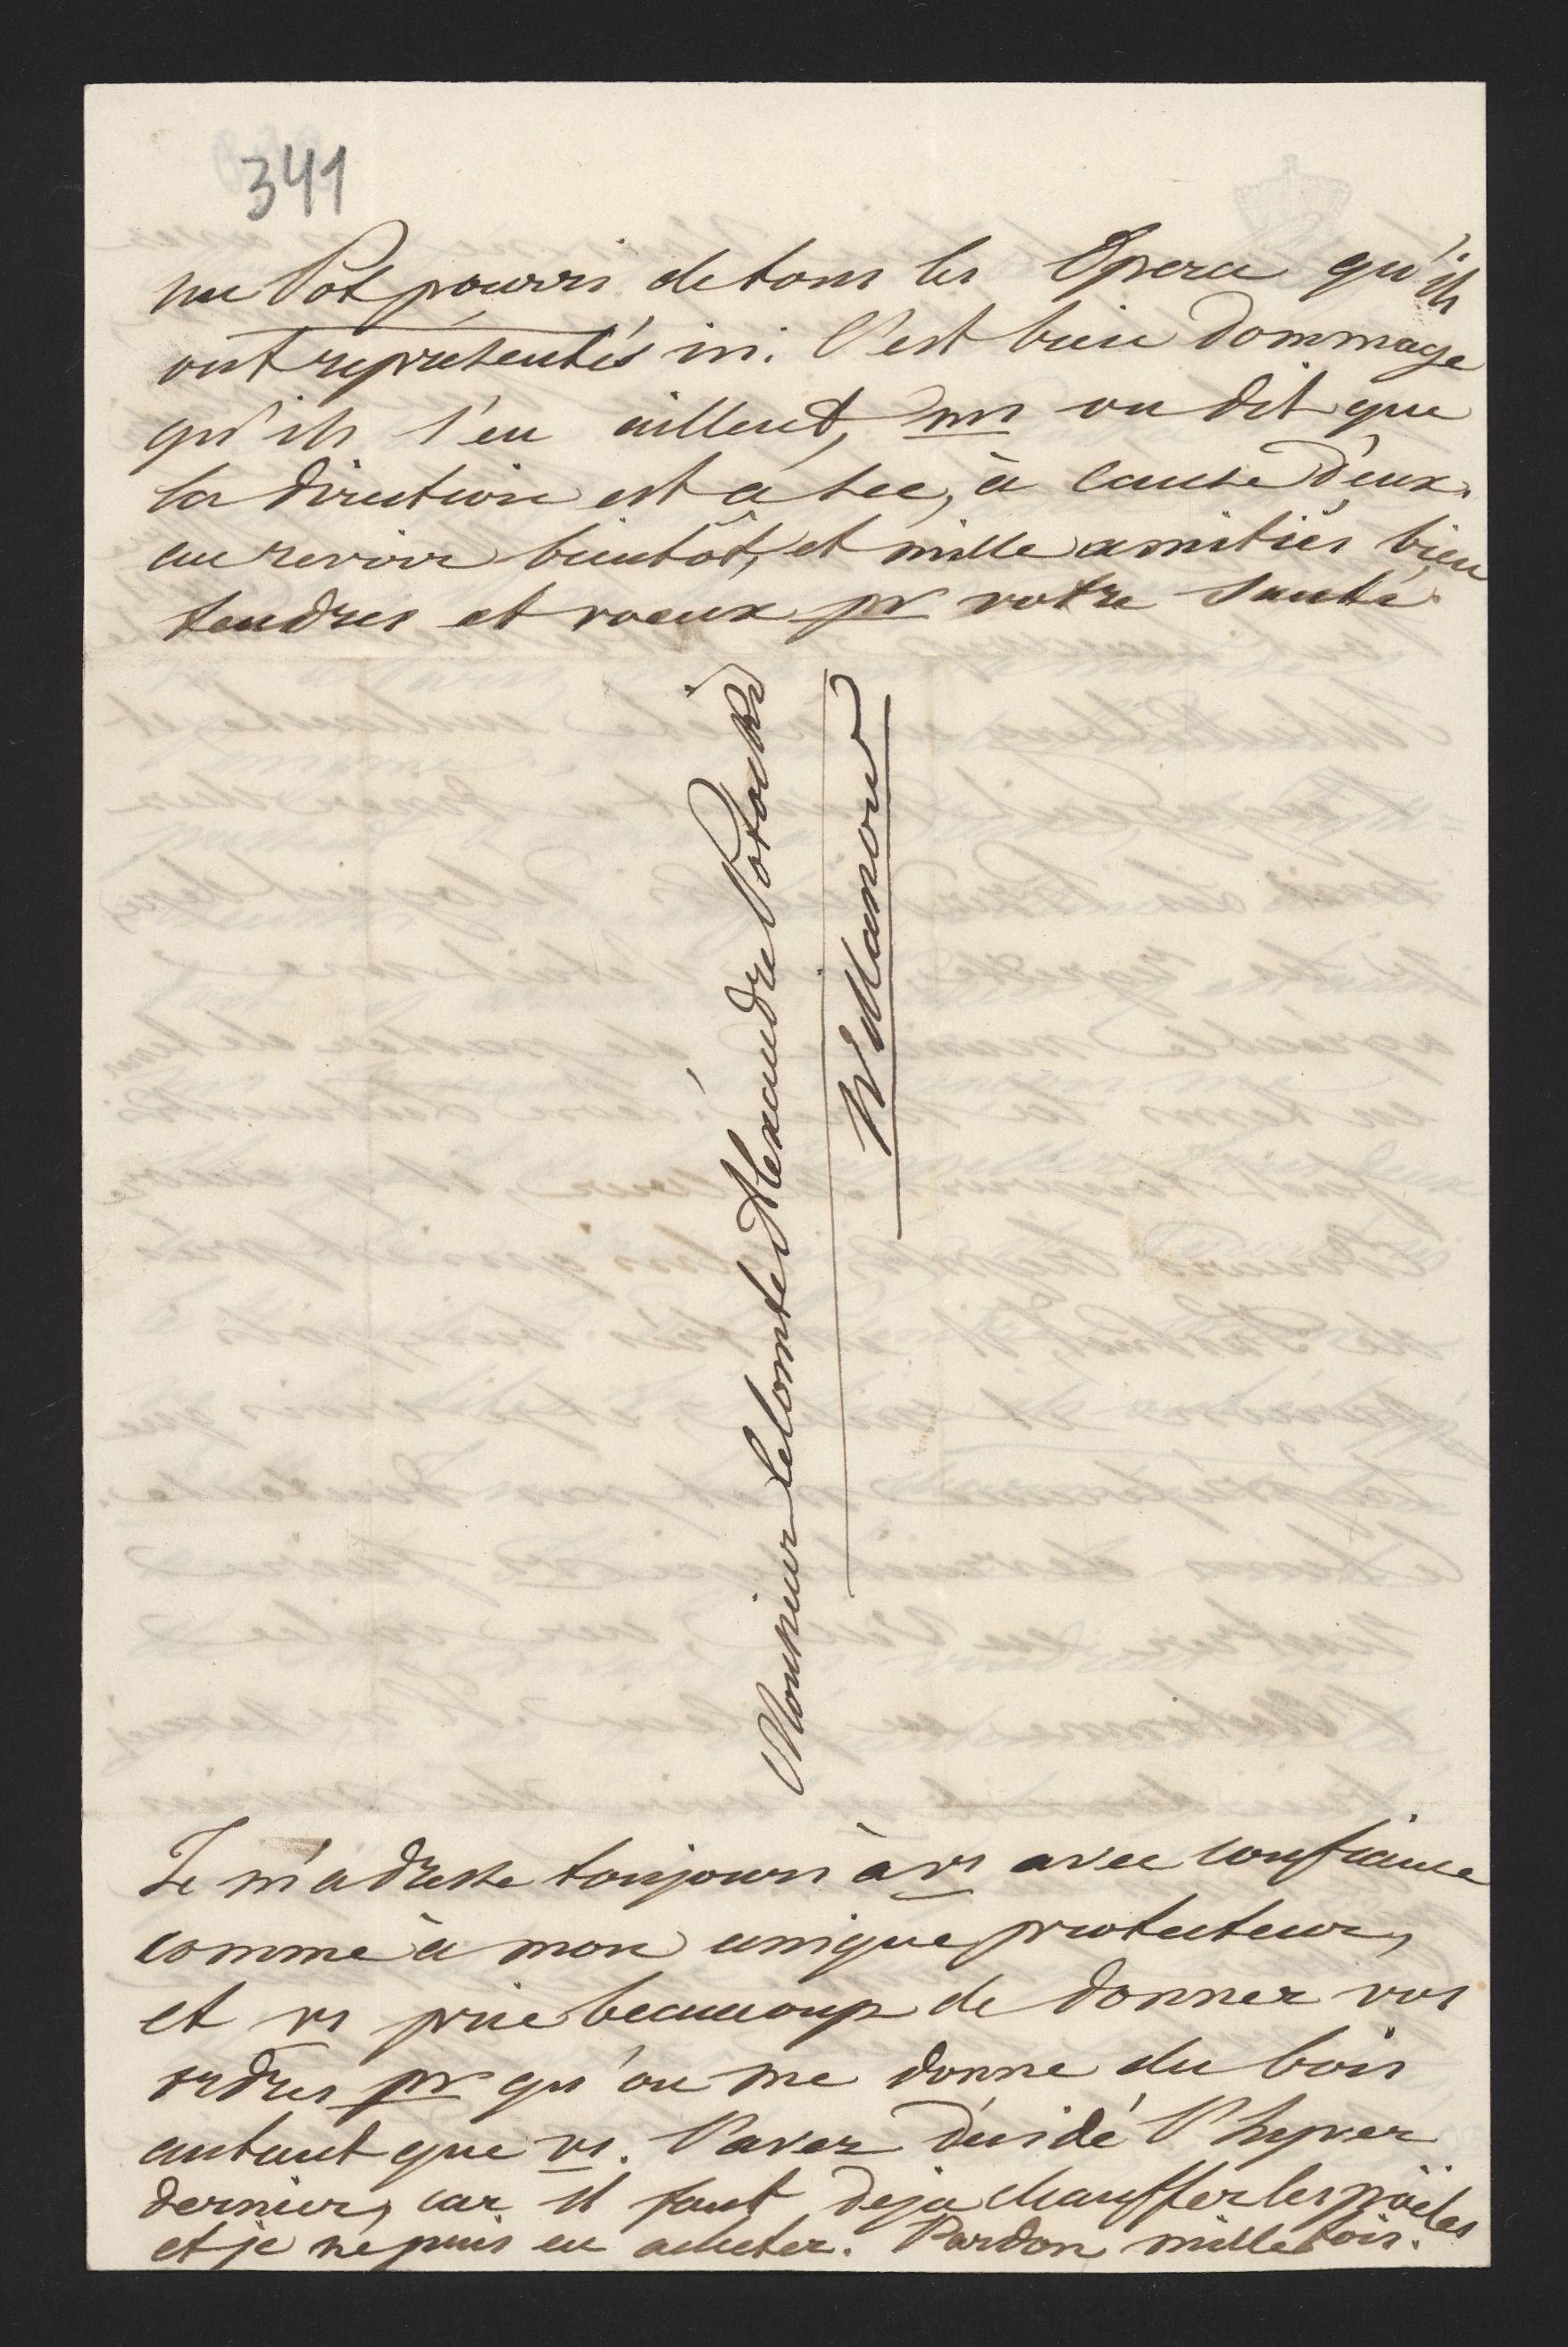 341
un Pot pourri de tous les Opera qu'ils
ont représentés ici. C'est bien dommage
qu'ils s'en aillent, mais on dit que
la direction est à sec, à cause d'eux.
au revoir bientôt, et mille amitiés bien
tendres et voeux pr votre santé.
Monsieur le Comte Alexandre Potocki
à
Willanow
Je m'adresse toujours à vs avec confiance
comme à mon unique protecteur,
et vs prie beaucoup de donner vos
ordres pr qu'on me donne du bois
autant que vs. l'avez décidé l'hyver
dernier, car il faut deja chauffer les poëles
et je ne puis en acheter. Pardon mille fois.